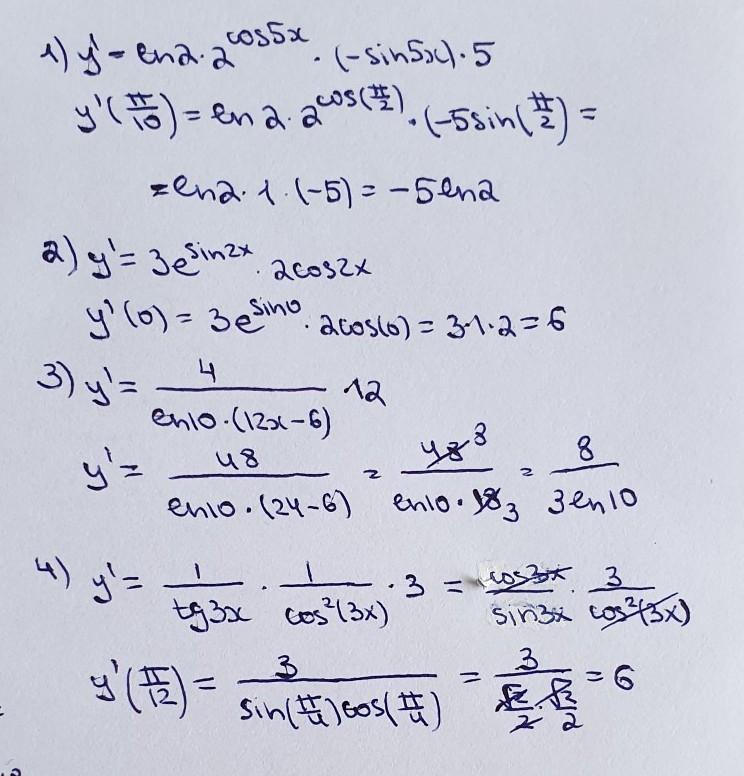 1) y' = ln2 · 2^cos5x · (-sin5x) · 5
y'(π/10) = ln2 · 2^cos(π/2) · (-5sin(π/2) =
= ln2 · 1 · (-5) = -5ln2
2) y' = 3e^sin2x · 2cos2x
y'(0) = 3e^sin0 · 2cos(0) = 3·1·2 = 6
3) y' = 4/(ln10·(12x-6)) 12
y' = 48/(ln10·(24-6)) = 48 8/(ln10·18 3) = 8/(3ln10)
4) y' = 1/tg3x · 1/cos²(3x) · 3 = cos3x/sin3x · 3/cos²(3x)
y'(π/12) = 3/(sin(π/4)cos(π/4)) = 3/(√2/2 · √2/2) = 6